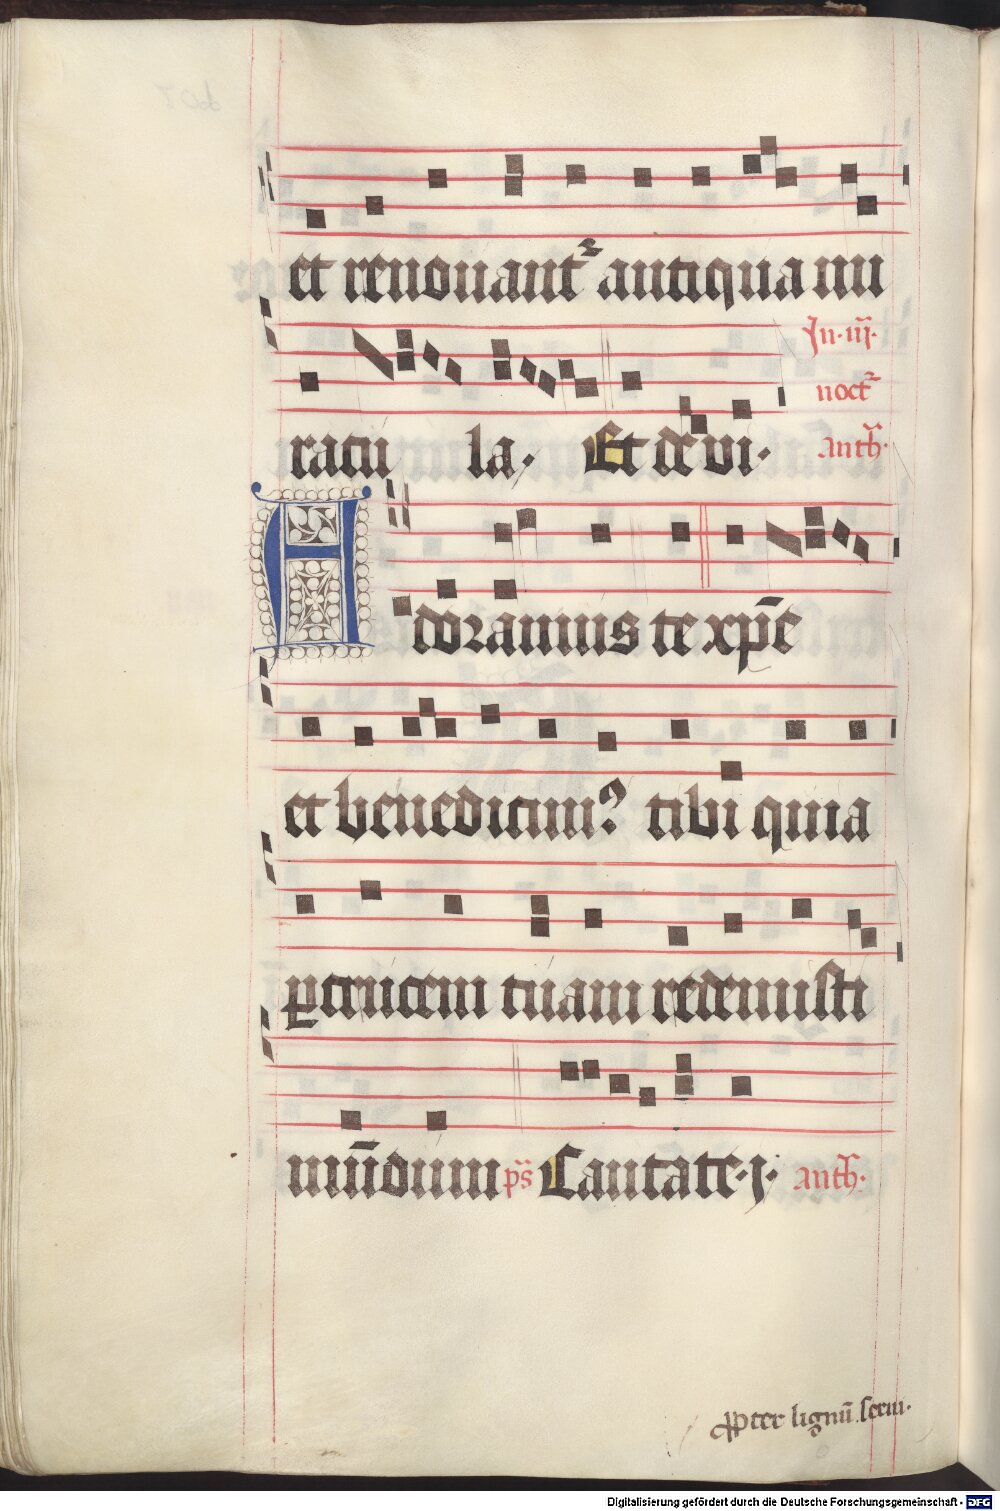 et renouant᷑ antiqua mi
racu la. Et de vi.
In .iij.
noct᷑
anth̃.
Adoramus te xp̄e
et benedicim᷒ tibi quia
ꝑ crucem tuam redemisti
mūdum ps̄ Cantate .j. anth̃.
ꝓpter lignū serui.
Digitalisierung gefördert durch die Deutsche Forschungsgemeinschaft - DFG